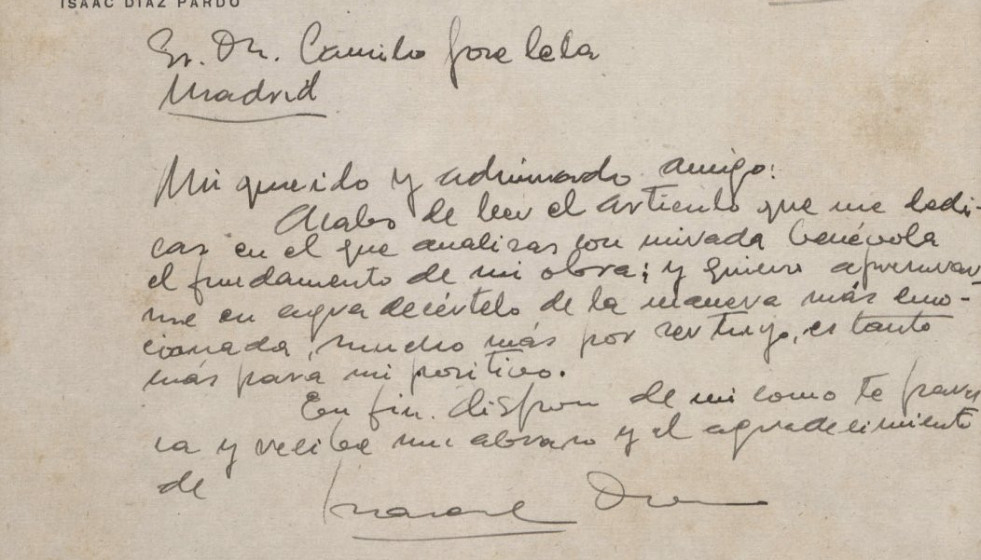 ISAAC DIAZ PARDO
Sr. Dn. Camilo Jose Cela
Madrid
Mi querido y admirado amigo:
Acabo de leer el artículo que me dedi-
cas en el que analizas con mirada benévola
el fundamento de mi obra; y quiero apresurar
me en agradecértelo de la manera más emo-
cionada, mucho más por ser tuyo, es tanto
más para mi positivo.
En fin. dispon de mi como te parez
ca y recibe un abrazo y el agradecimiento
de Isaac